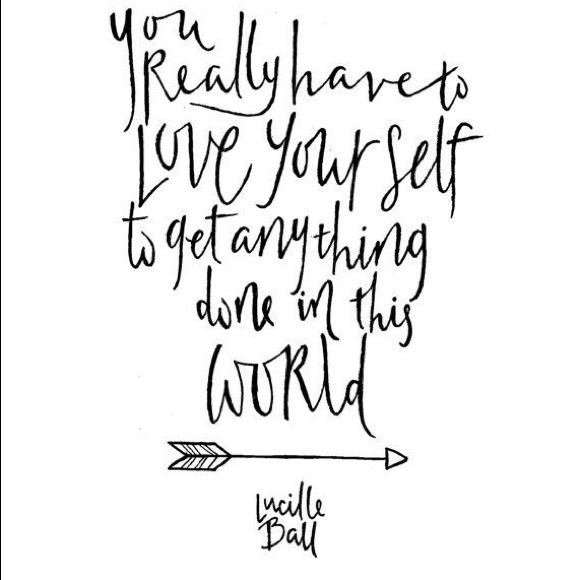 you
Really have to
LOVE YOURSELF
to get anything
done in this
WORLd
Lucille
Ball